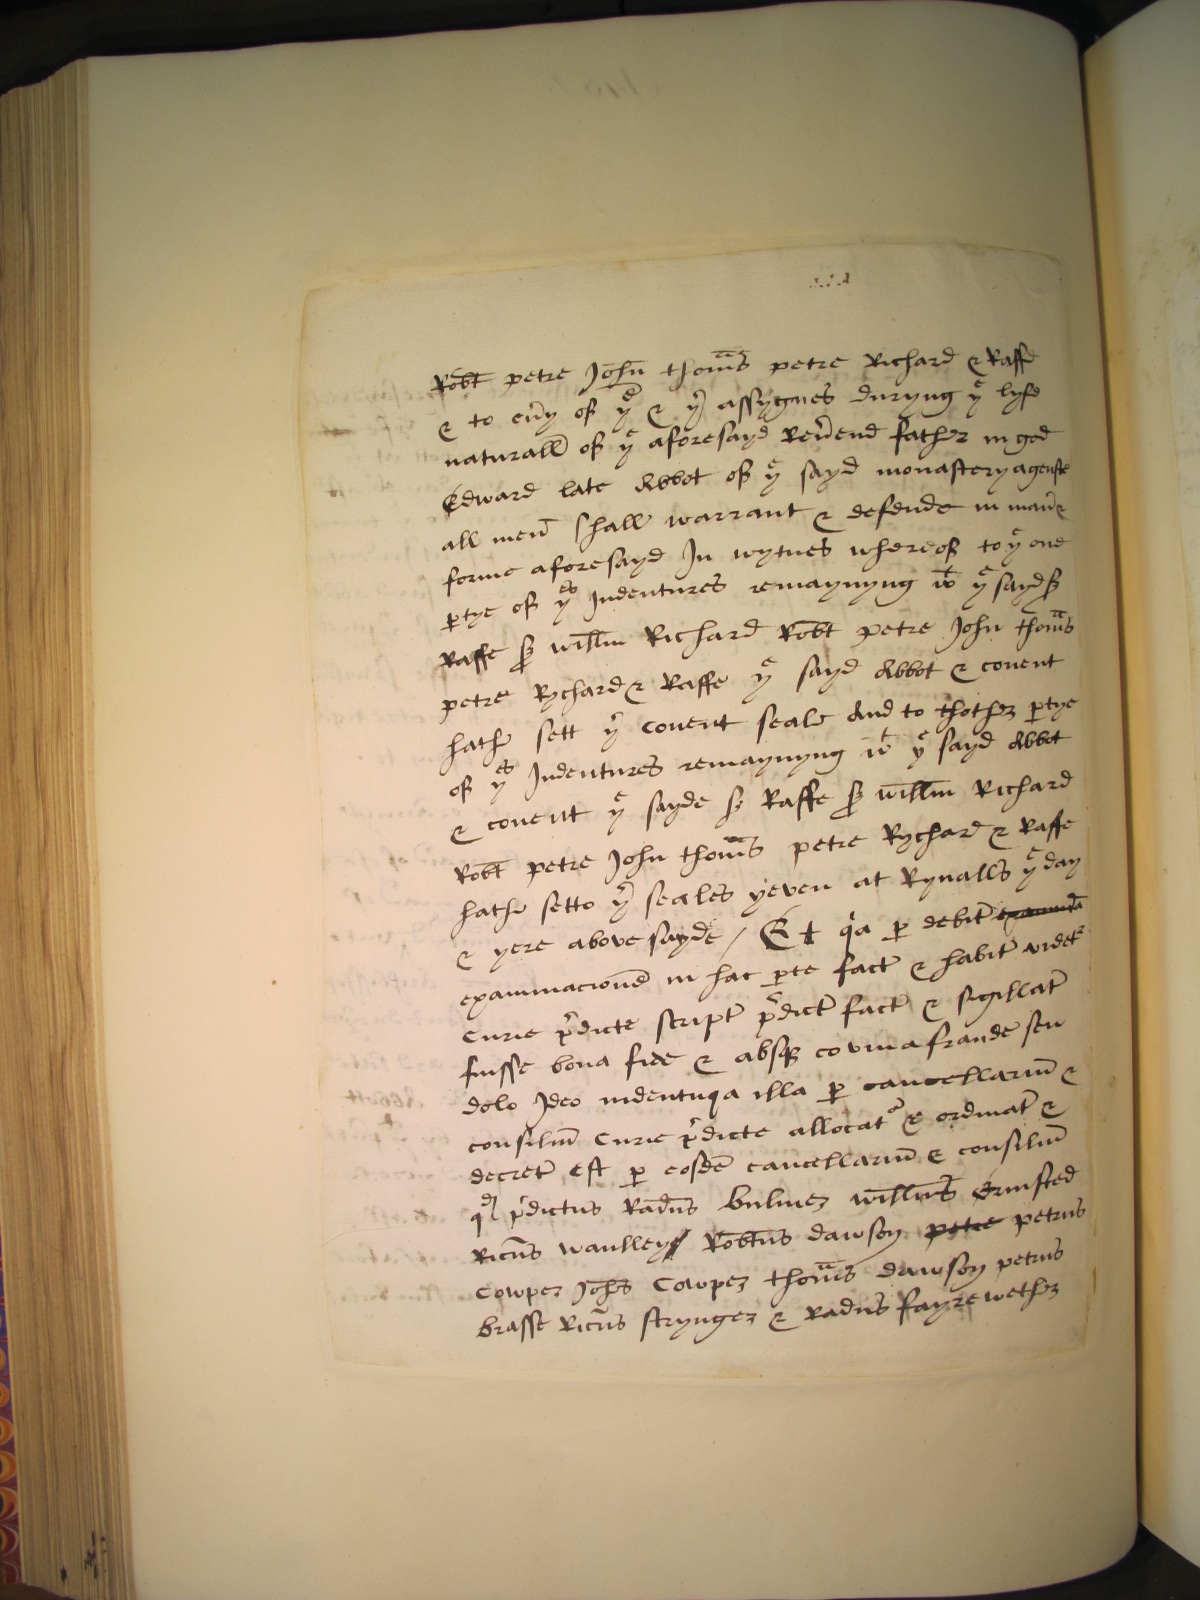 Robt petre John thoms petre Richard & Raffe
& to eu'y of yem & yr assygnes duryng ye lyfe
naturall of ye aforesayd Reu'end father in god
Edward late Abbot of ye sayd monastery agenste
all men shall warrant & defende in man' &
forme aforesayd In wytnes whereof to ye one
ptye of yes Indentures remaynyng wt ye sayd sr
Raffe sr willm Richard Robt petre John thoms
petre Rychard & Raffe ye sayd Abbot & couent
hathe sett yr couent seale And to thother ptye
of yes Indentures remaynyng wt ye sayd Abbot
& couent ye sayde sr Raffe sr willm Richard
Robt petre John thoms petre Rychard & Raffe
hathe setto yr seales yeven at Ryualls ye day
& yere above sayde / Et qa p debit
examinacione in hac pte fact & habit videt
Curie pdicte script pdict fact & sigillat
fuisse bona fide & absq covina fraude seu
dolo Ideo indentura illa p cancellariu &
consiliu Curie pdicte allocatr & ordinat &
decret est p eosde cancellariu & consiliu
qd pdictus Radus Bulmer willms Ermsted
Ricus waulley Robtus dawson petre petrus
Cowper Johes Cowper thoms dawson petrus
brasse Ricus strynger & Radus fayrewether